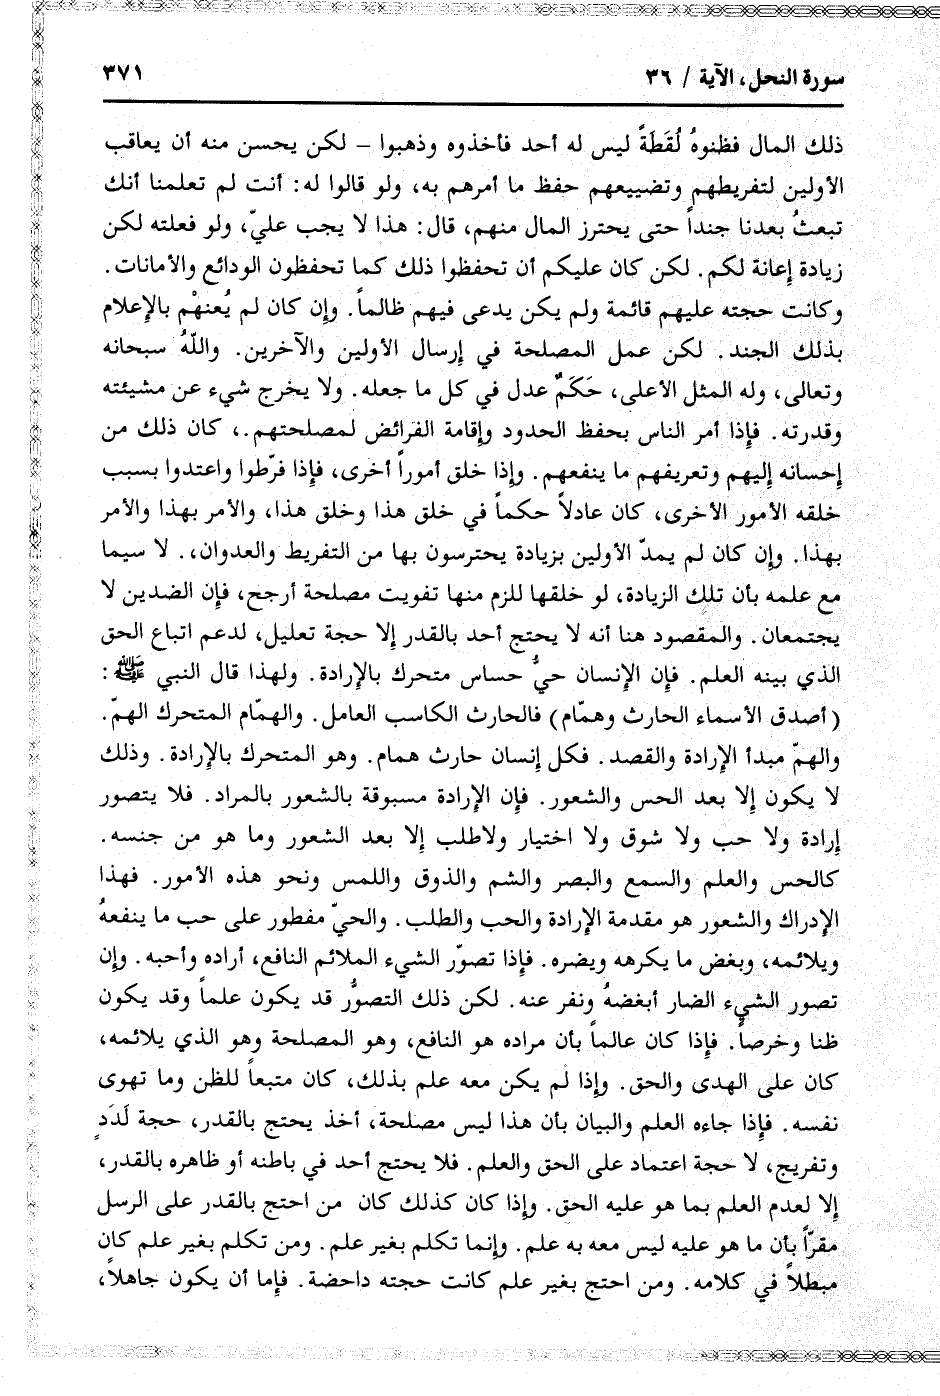 سورة النحل، الآية / ٣٦
٣٧١
ذلك المال فظنوهُ لُقَطَةً ليس له أحد فأخذوه وذهبوا – لكن يحسن منه أن يعاقب
الأولين لتفريطهم وتضييعهم حفظ ما أمرهم به، ولو قالوا له: أنت لم تعلمنا أنك
تبعثُ بعدنا جنداً حتى يحترز المال منهم، قال: هذا لا يجب عليّ، ولو فعلته لكن
زيادة إعانة لكم. لكن كان عليكم أن تحفظوا ذلك كما تحفظون الودائع والأمانات.
وكانت حجته عليهم قائمة ولم يكن يدعى فيهم ظالماً. وإن كان لم يُعنهْم بالإعلام
بذلك الجند. لكن عمل المصلحة في إرسال الأولين والآخرين. واللّهُ سبحانه
وتعالى، وله المثل الأعلى، حَكَمٌ عدل في كل ما جعله. ولا يخرج شيء عن مشيئته
وقدرته. فإذا أمر الناس بحفظ الحدود وإقامة الفرائض لمصلحتهم.، كان ذلك من
إحسانه إليهم وتعريفهم ما ينفعهم. وإذا خلق أموراً أخرى، فإذا فرّطوا واعتدوا بسبب
خلقه الأمور الأخرى، كان عادلاً حكماً في خلق هذا وخلق هذا، والأمر بهذا والأمر
بهذا. وإن كان لم يمدّ الأولين بزيادة يحترسون بها من التفريط والعدوان،. لا سيما
مع علمه بأن تلك الزيادة، لو خلقها للزم منها تفويت مصلحة أرجح، فإن الضدين لا
يجتمعان. والمقصود هنا أنه لا يحتج أحد بالقدر إلا حجة تعليل، لدعم اتباع الحق
الذي بينه العلم. فإن الإنسان حيُّ حساس متحرك بالإرادة. ولهذا قال النبي ﷺ:
(أصدق الأسماء الحارث وهمّام) فالحارث الكاسب العامل. والهمّام المتحرك الهمّ.
والهمّ مبدأ الإرادة والقصد. فكل إنسان حارث همام. وهو المتحرك بالإرادة. وذلك
لا يكون إلا بعد الحس والشعور. فإن الإرادة مسبوقة بالشعور بالمراد. فلا يتصور
إرادة ولا حب ولا شوق ولا اختيار ولاطلب إلا بعد الشعور وما هو من جنسه.
كالحس والعلم والسمع والبصر والشم والذوق واللمس ونحو هذه الأمور. فهذا
الإدراك والشعور هو مقدمة الإرادة والحب والطلب. والحيّ مفطور على حب ما ينفعهُ
ويلائمه، وبغض ما يكرهه ويضره. فإذا تصوّر الشيء الملائم النافع، أراده وأحبه. وإن
تصور الشيء الضار أبغضهُ ونفر عنه. لكن ذلك التصوُّر قد يكون علماً وقد يكون
ظنا وخرصاً. فإذا كان عالماً بأن مراده هو النافع، وهو المصلحة وهو الذي يلائمه،
كان على الهدى والحق. وإذا لم يكن معه علم بذلك، كان متبعاً للظن وما تهوى
نفسه. فإذا جاءه العلم والبيان بأن هذا ليس مصلحة، أخذ يحتج بالقدر، حجة لَدَدٍ
وتفريج، لا حجة اعتماد على الحق والعلم. فلا يحتج أحد في باطنه أو ظاهره بالقدر،
إلا لعدم العلم بما هو عليه الحق. وإذا كان كذلك كان من احتج بالقدر على الرسل
مقرّاً بأن ما هو عليه ليس معه به علم. وإنما تكلم بغير علم. ومن تكلم بغير علم كان
مبطلاً في كلامه. ومن احتج بغير علم كانت حجته داحضة. فإما أن يكون جاهلاً،